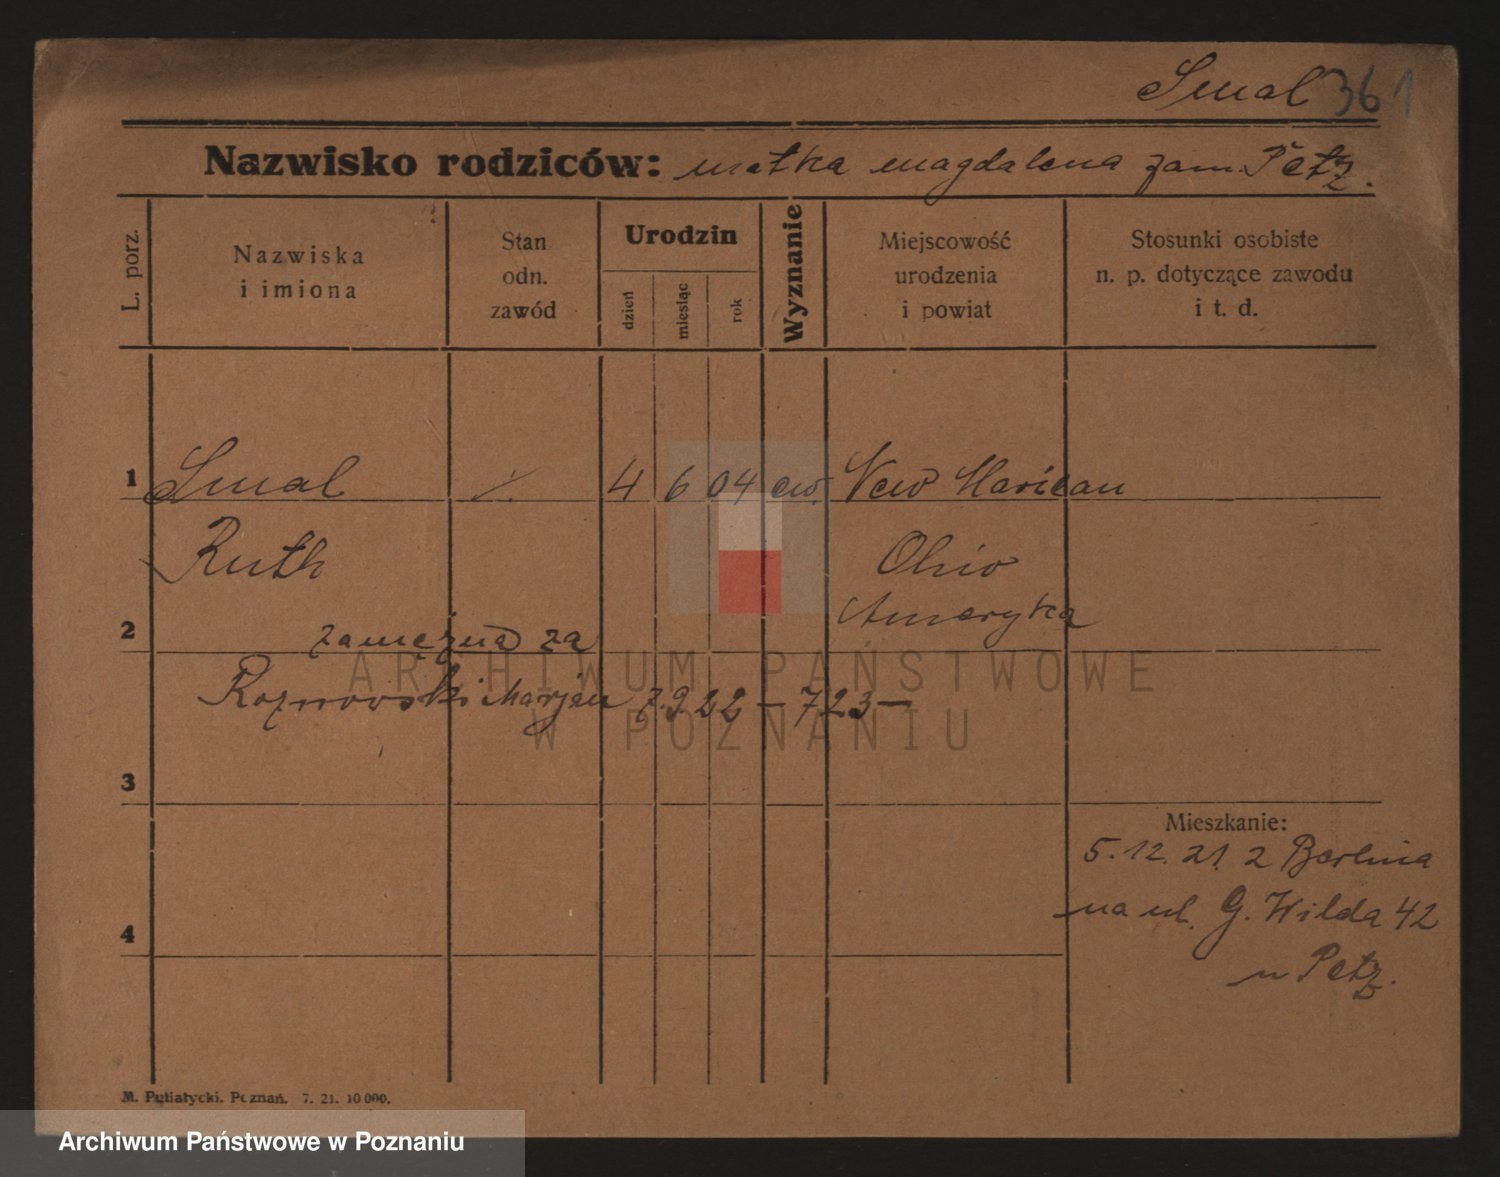 Smal 361
Nazwisko rodziców: matka Magdalena zam. Petz.
L. porz.
Nazwiska
i imiona
Stan
odn.
zawód
Urodzin
dzień
miesiąc
rok
Wyznanie
Miejscowość
urodzenia
i powiat
Stosunki osobiste
n. p. dotyczące zawodu
i t. d.
1 Smal 4 6 04 ew. New Harican
Ruth Ohio
Ameryka
2 zamężna za
Roznowski Marjan 7.9.22 – 723 –
3
Mieszkanie:
5.12.21. z Berlina
na ul. G. Wilda 42
4
u Petz.
M. Putiatycki. Poznań. 7. 21. 10 000.
ARCHIWUM PAŃSTWOWE
W POZNANIU
Archiwum Państwowe w Poznaniu